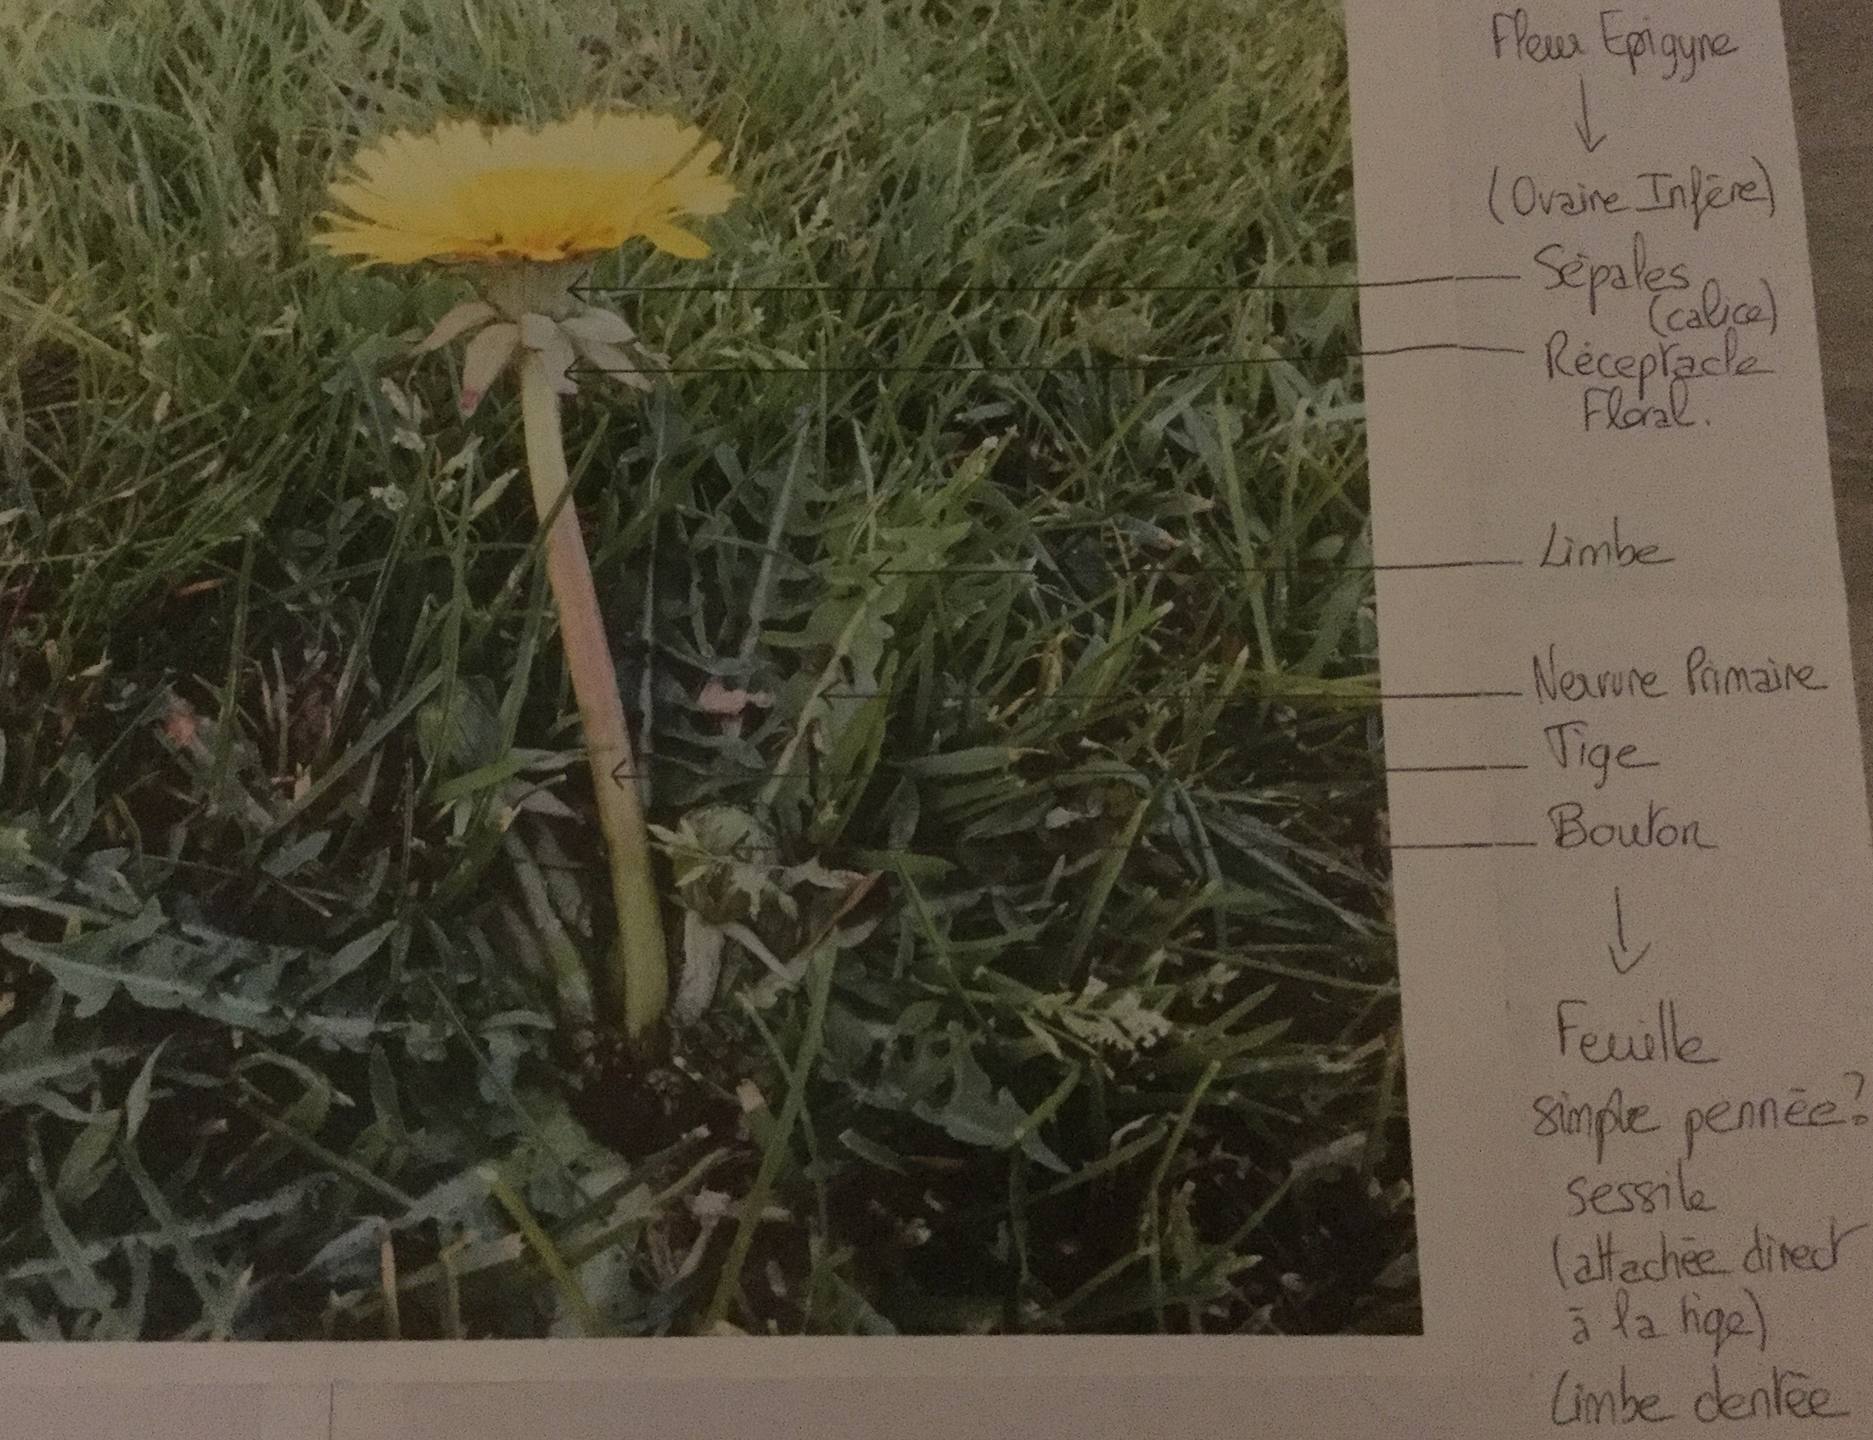 Fleur Epigyne
(Ovaire Infère)
Sépales
(calice)
Réceptacle
Floral.
Limbe
Nervure Primaire
Tige
Bouton
Feuille
simple pennée?
sessile
(attachée direct
à la tige)
Limbe dentée